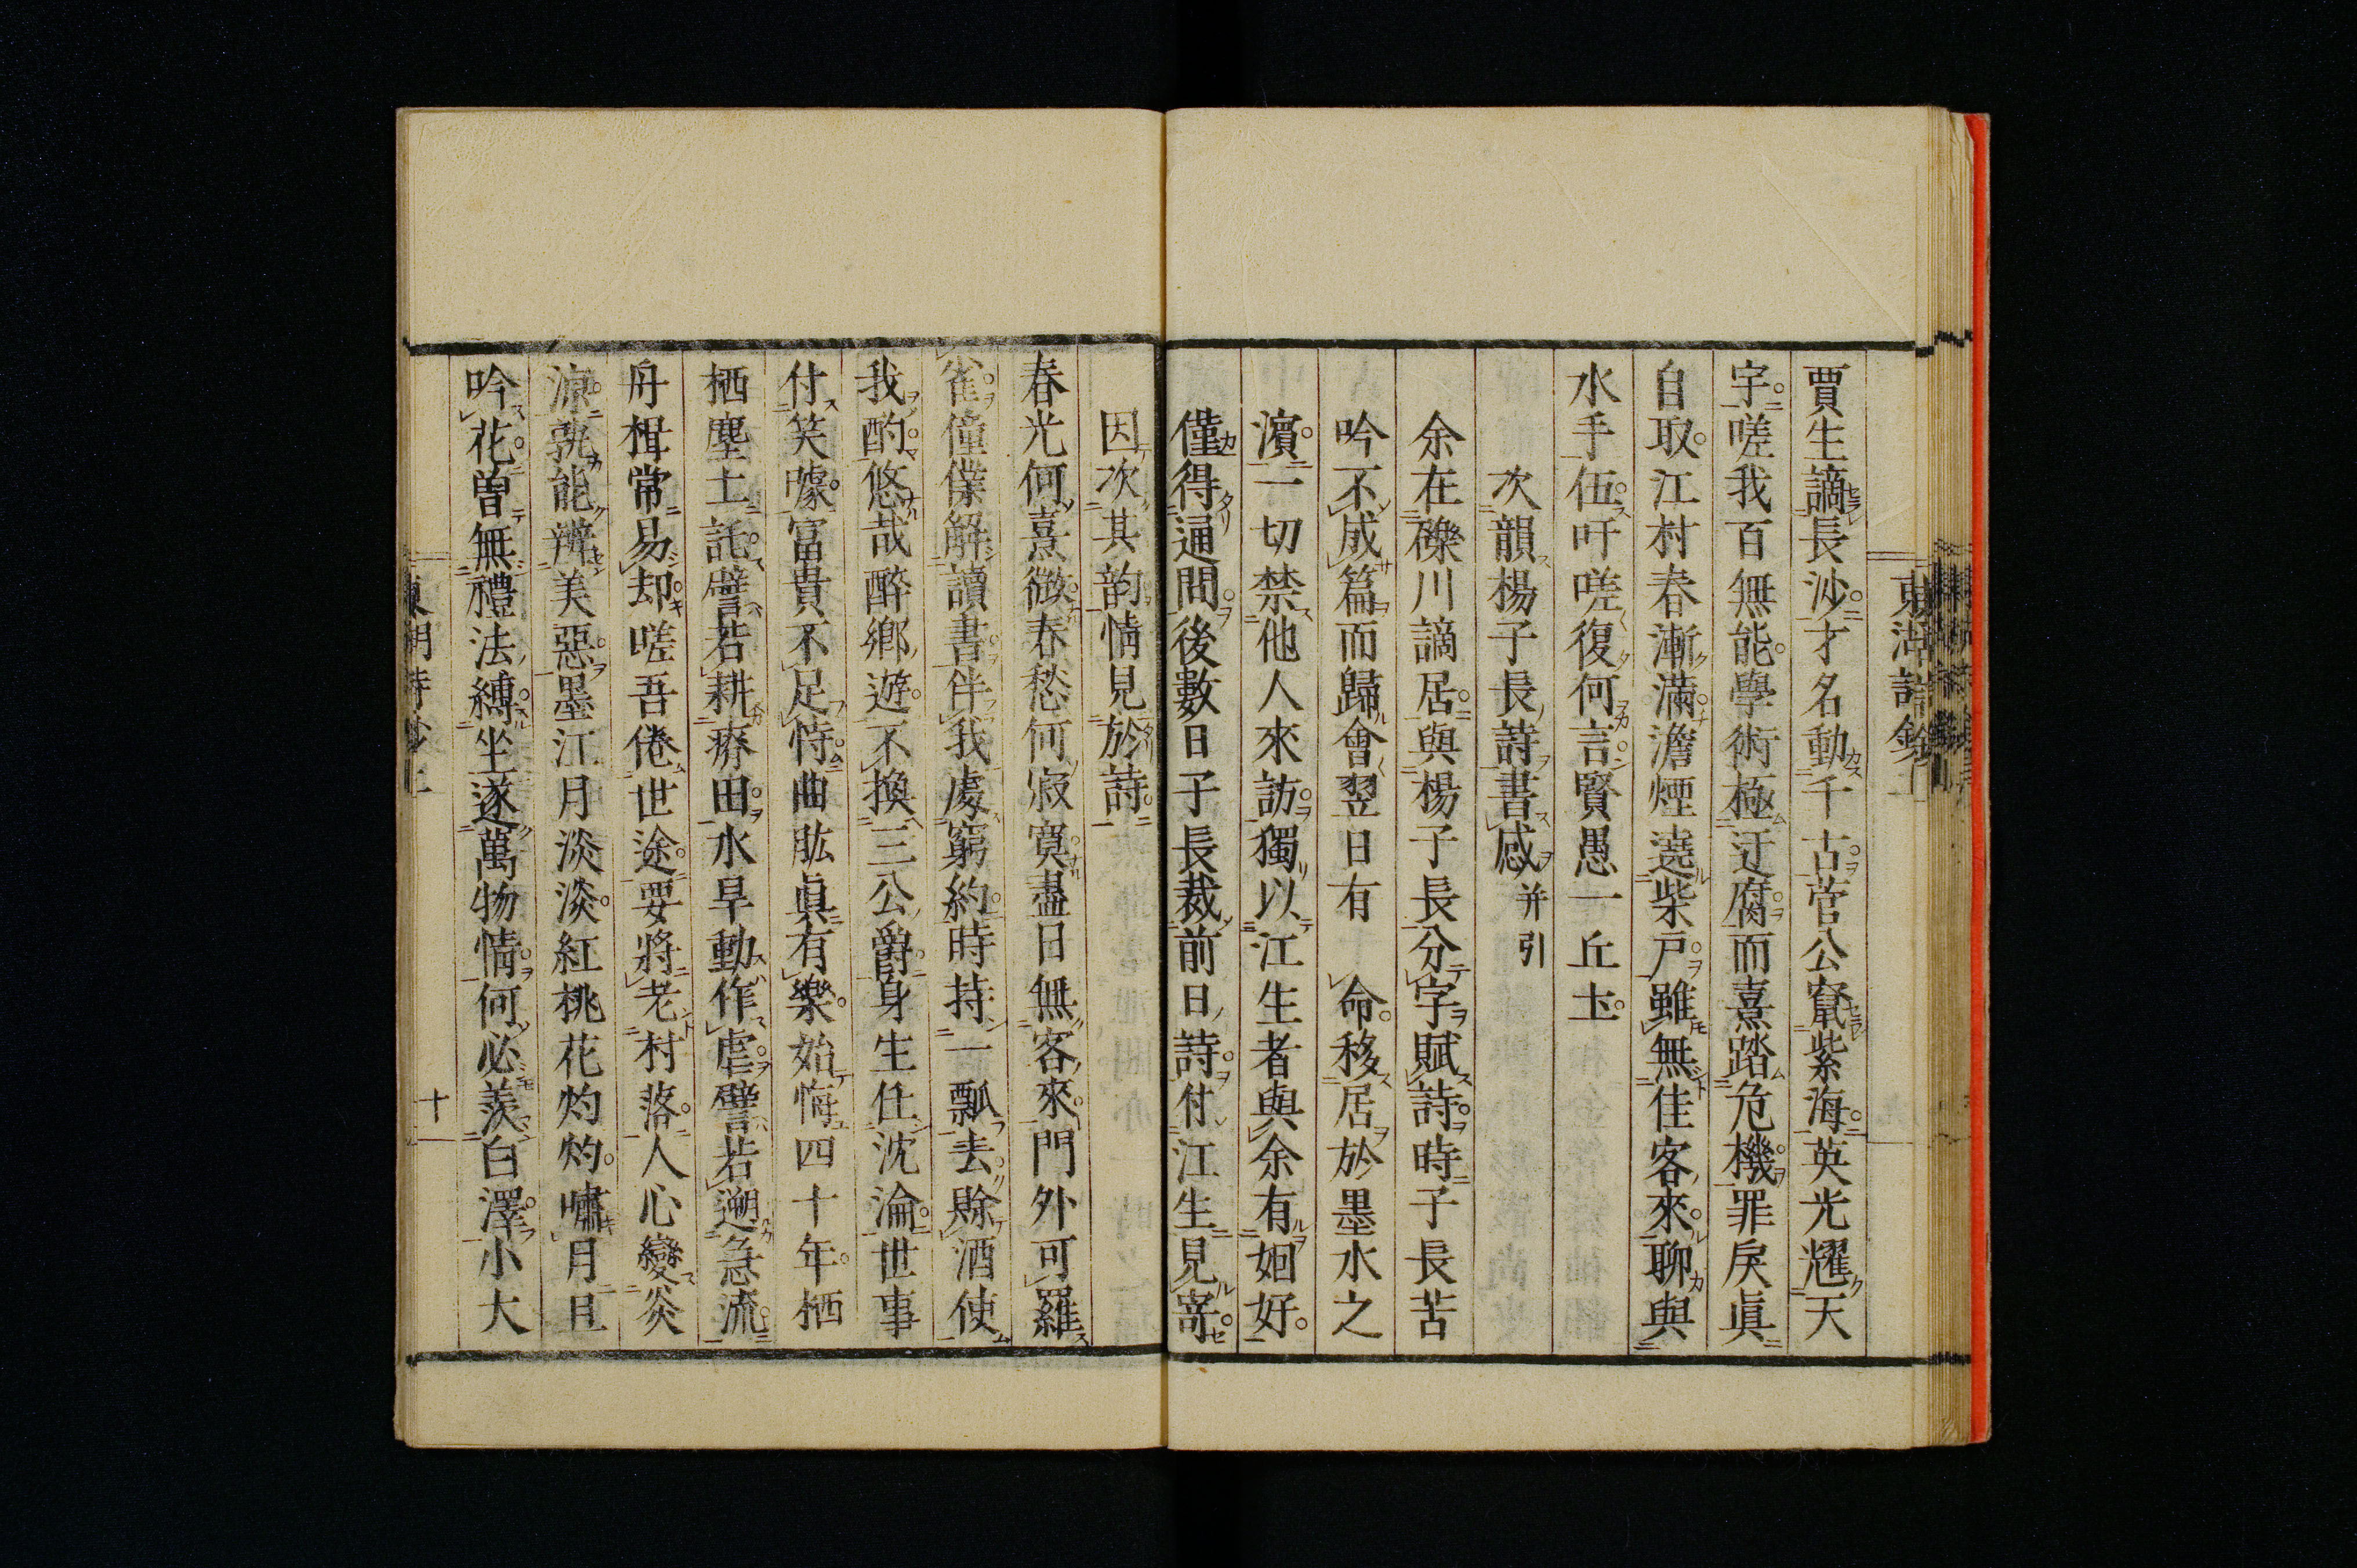 賈生謫長沙才名動千古菅公竄紫海英光耀天
宇嗟我百無能學術極迂腐而熹踏危機罪戾眞
自取江村春漸滿澹煙遶柴戸雖無佳客來聊與
水手伍吁嗟復何言賢愚一丘土
次韻楊子長詩書感并引
余在礫川謫居與楊子長分字賦詩時子長苦
吟不成篇而歸會翌日有 命移居於墨水之
濱一切禁他人來訪獨以江生者與余有姻好
僅得通問後數日子長裁前日詩付江生見寄
因次其韵情見於詩
春光何熹微春愁何寂寞盡日無客來門外可羅
雀僮僕解讀書伴我處窮約時持一瓢去賖酒使
我酌悠哉醉鄉遊不換三公爵身生仕沈淪世事
付笑噱富貴不足恃曲肱眞有樂始悔四十年栖
栖塵土託譬若耕瘠田水旱動作虐譬若遡急流
舟楫常易却嗟吾倦世途要將老村落人心變炎
涼孰能辨美惡墨江月淡淡紅桃花灼灼嘯月且
吟花曽無禮法縛坐遂萬物情何必羨白澤小大
十